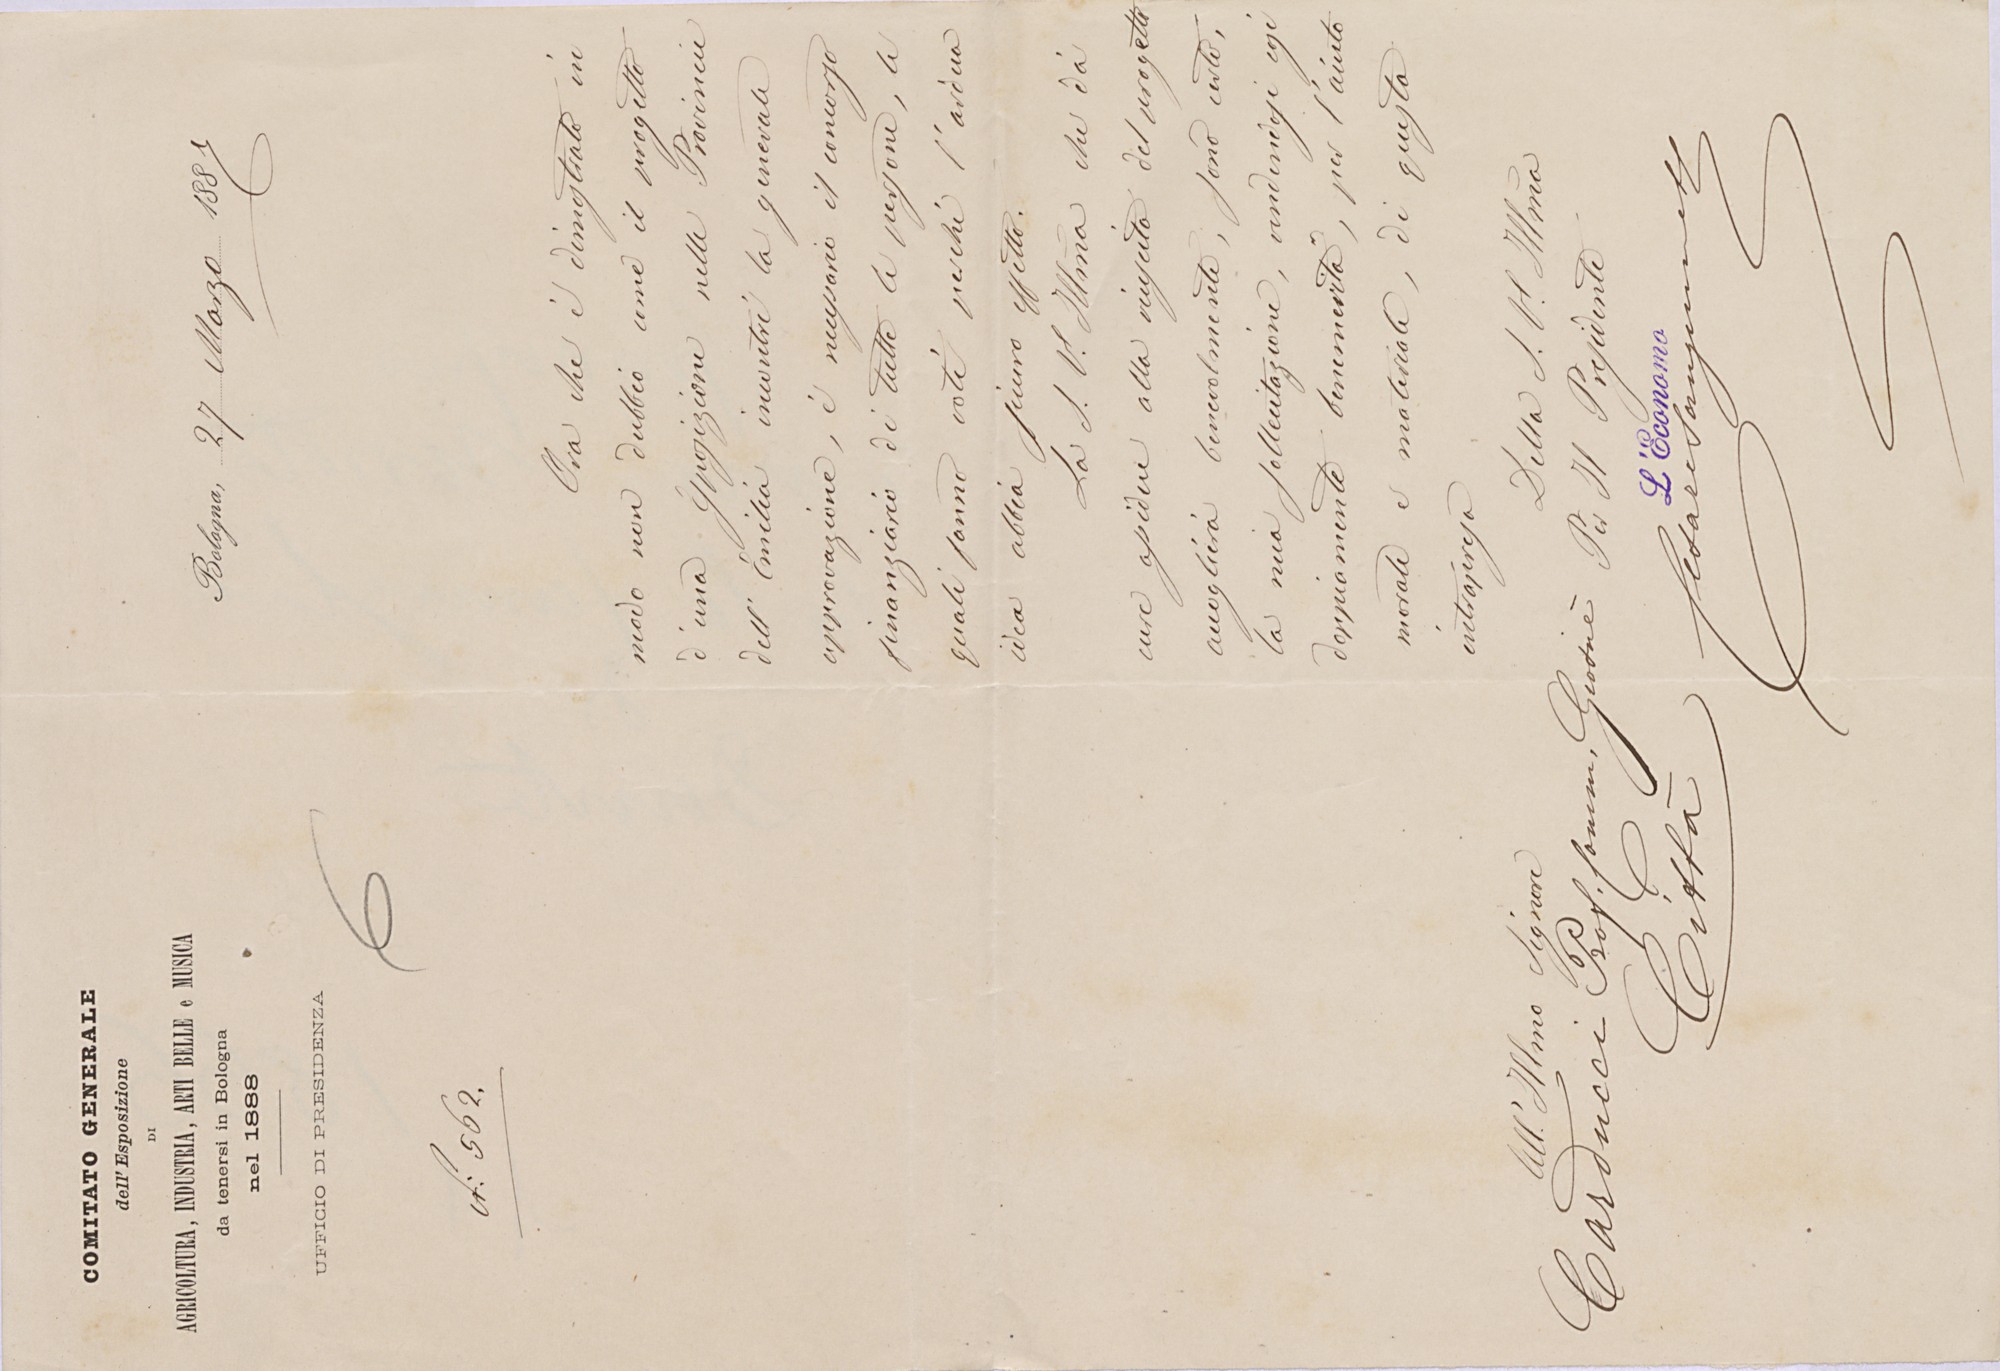 COMITATO GENERALE
dell'Esposizione
DI
AGRICOLTURA, INDUSTRIA, ARTI BELLE e MUSICA
da tenersi in Bologna
nel 1888
UFFICIO DI PRESIDENZA
6
N.° 562.
Bologna, 27 Marzo 1887
Ora che è dimostrato in
modo non dubbio come il progetto
d'una Esposizione nelle Provincie
dell'Emilia incontri la generale
approvazione, è necessario il concorso
finanziario di tutte le persone, le
quali fanno voti perchè l'ardua
idea abbia pieno effetto.
La S. V. Illma che dà
cure assidue alla riuscita del progetto
accoglierà benevolmente, sono certo,
la mia sollecitazione, rendendosi così
doppiamente benemerita, per l'aiuto
morale e materiale, di questa
intrapresa
Della S. V. Illma
Per Il Presidente
L'Economo
Cesare
All'Illmo Signore
Carducci Prof. Comm. Giosuè
Città